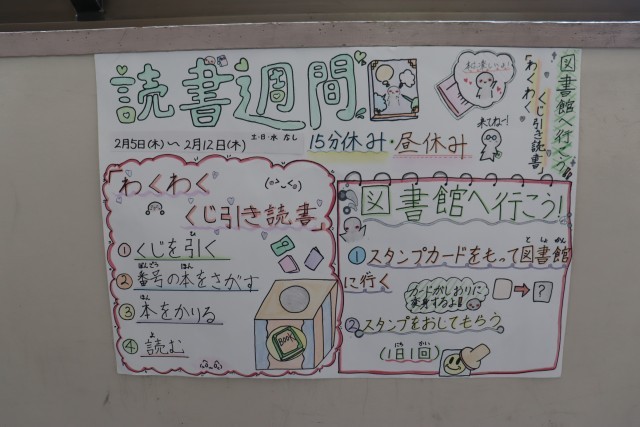 読書週間
2月5日(木)～2月12日(木)
土・日・水 なし
15分休み・昼休み
来てね～!
図書館へ行こう
「わくわく
くじ引き読書」
「わくわく
くじ引き読書」
①くじを引く
②番号の本をさがす
③本をかりる
④読む
BOOK
図書館へ行こう!
①スタンプカードをもって図書館
に行く
カードがしおりに
変身するよ!!
?
②スタンプをおしてもらう
(1日1回)